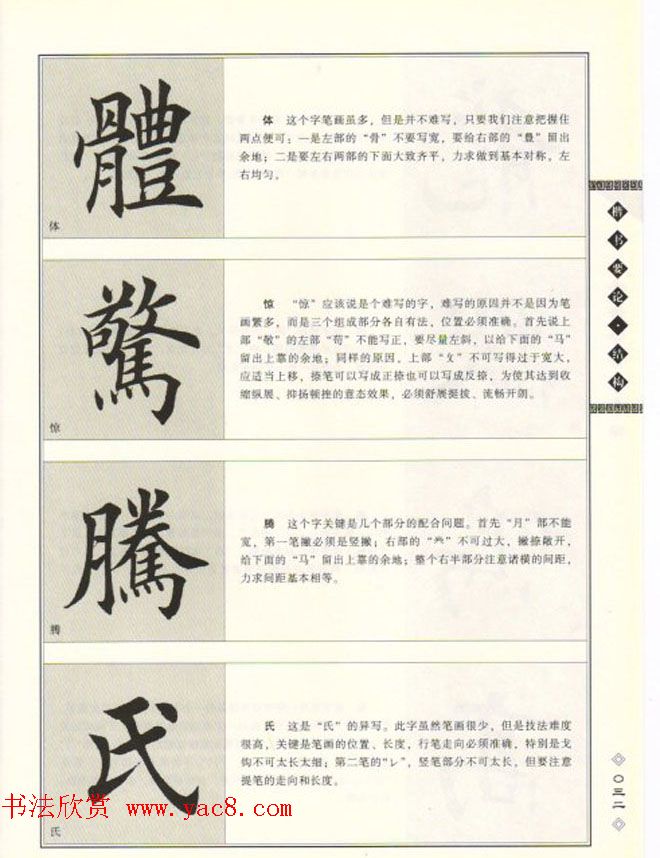 體
体
体 这个字笔画虽多，但是并不难写，只要我们注意把握住
两点便可：一是左部的“骨”不要写宽，要给右部的“豊”留出
余地；二是要左右两部的下面大致齐平，力求做到基本对称，左
右均匀。
驚
惊
惊 “惊”应该说是个难写的字，难写的原因并不是因为笔
画繁多，而是三个组成部分各自有法，位置必须准确。首先说上
部“敬”的左部“苟”不能写正，要尽量左斜，以给下面的“马”
留出上纂的余地；同样的原因，上部“攵”不可写得过于宽大，
应适当上移，捺笔可以写成正捺也可以写成反捺，为使其达到收
缩纵展、抑扬顿挫的意态效果，必须舒展挺拔、流畅开朗。
騰
腾
腾 这个字关键是几个部分的配合问题。首先“月”部不能
宽，第一笔撇必须是竖撇；右部的“龹”不可过大，撇捺敞开，
给下面的“马”留出上纂的余地；整个右半部分注意诸横的间距，
力求间距基本相等。
氏
氏
氏 这是“氏”的异写。此字虽然笔画很少，但是技法难度
很高，关键是笔画的位置、长度，行笔走向必须准确，特别是戈
钩不可太长太细；第二笔的“レ”，竖笔部分不可太长，但要注意
提笔的走向和长度。
楷书要论·结构
〇三二
书法欣赏 www.yac8.com